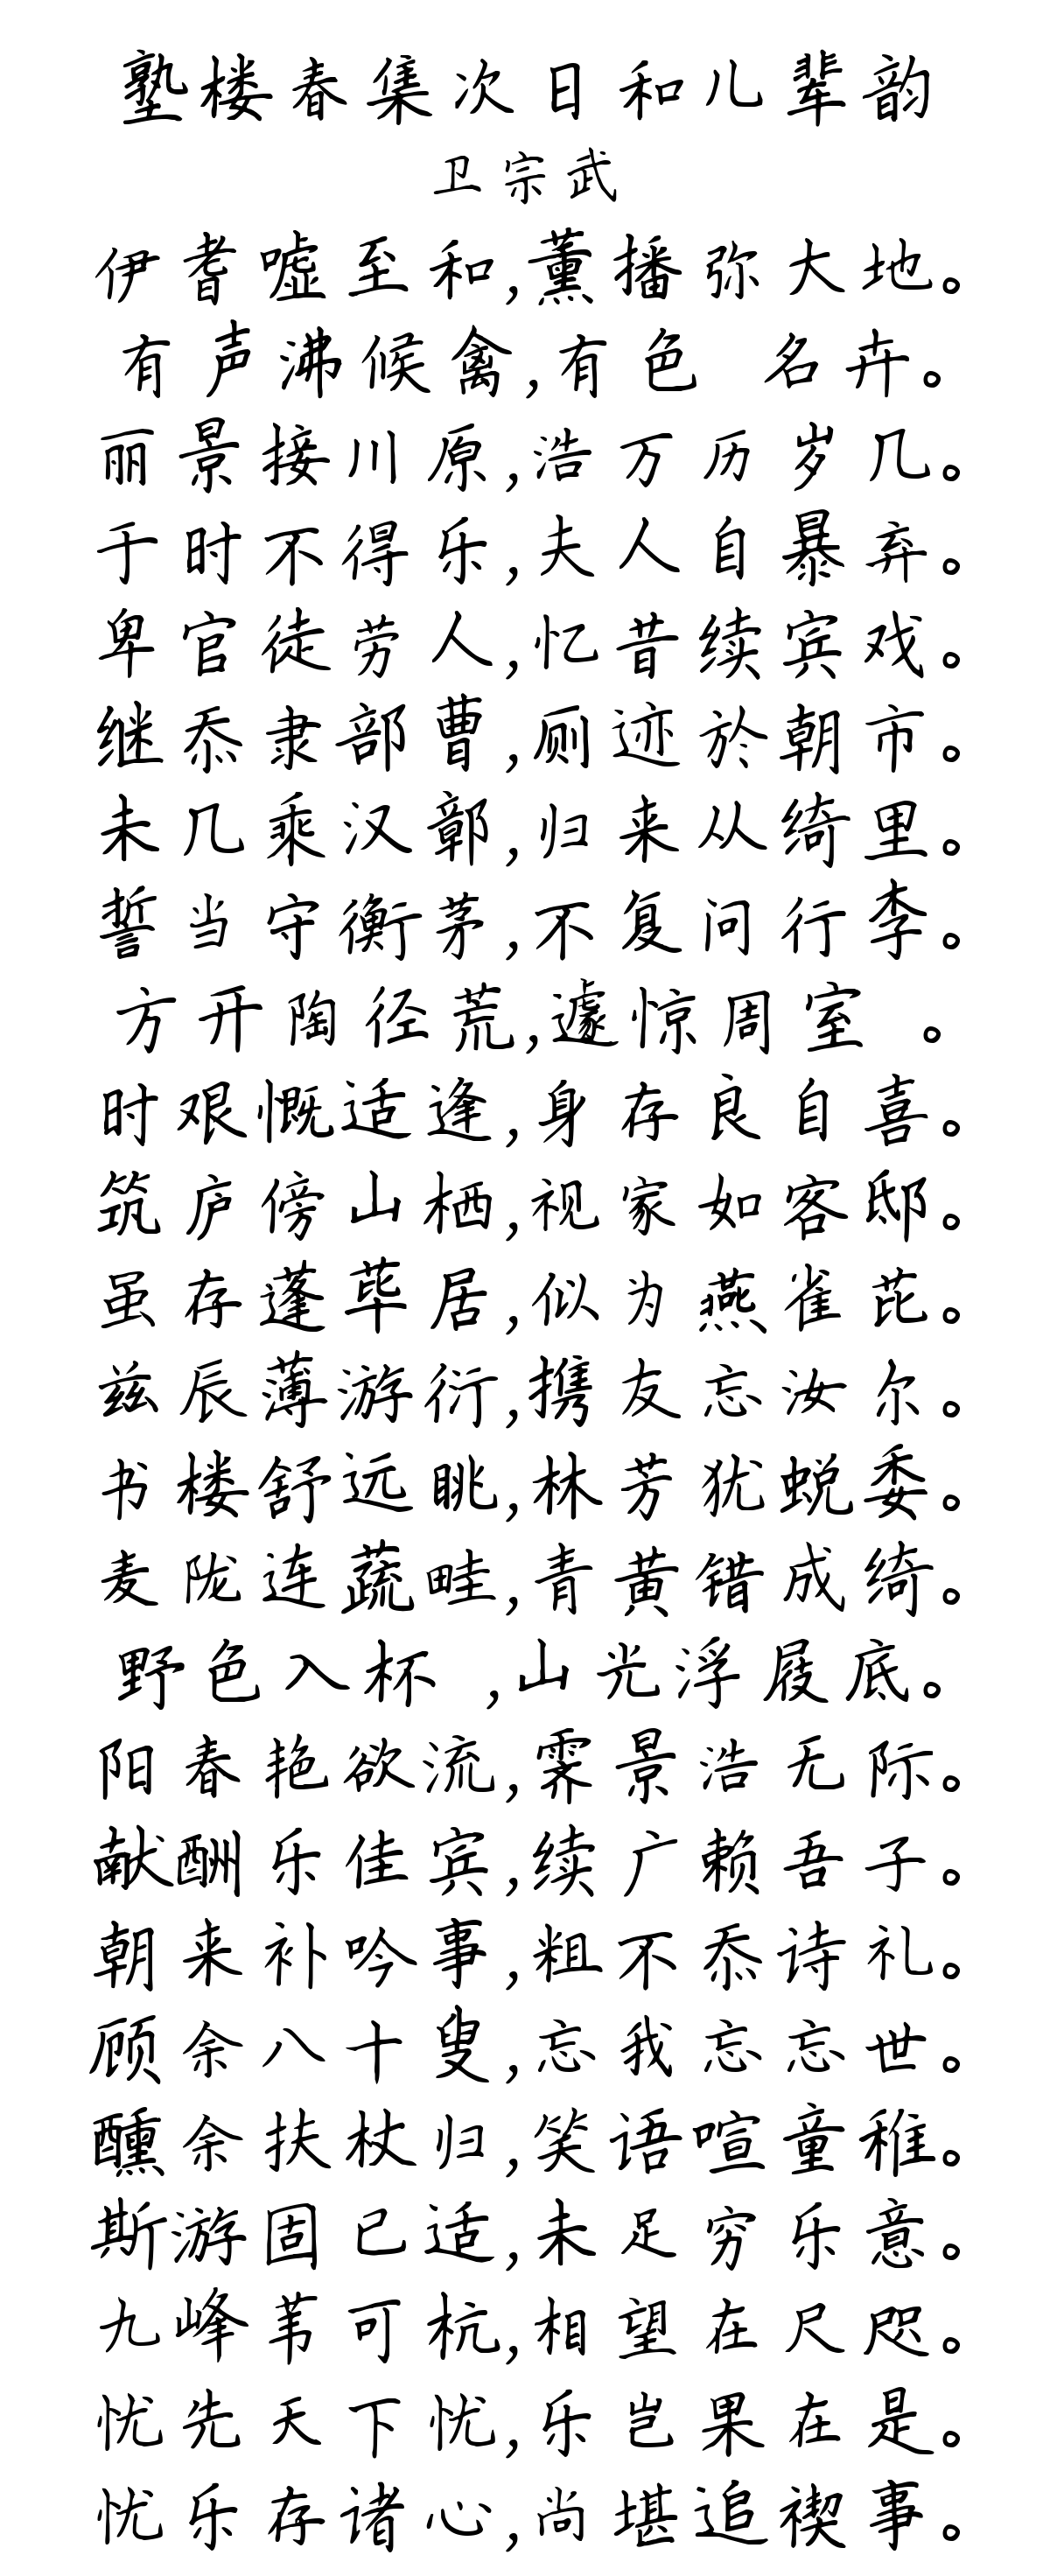 塾楼春集次日和儿辈韵
卫宗武
伊耆嘘至和,薰播弥大地。
有声沸候禽,有色 名卉。
丽景接川原,浩万历岁几。
于时不得乐,夫人自暴弃。
卑官徒劳人,忆昔续宾戏。
继忝隶部曹,厕迹於朝市。
未几乘汉鄣,归来从绮里。
誓当守衡茅,不复问行李。
方开陶径荒,遽惊周室 。
时艰慨适逢,身存良自喜。
筑庐傍山栖,视家如客邸。
虽存蓬荜居,似为燕雀芘。
兹辰薄游衍,携友忘汝尔。
书楼舒远眺,林芳犹蜕委。
麦陇连蔬畦,青黄错成绮。
野色入杯 ,山光浮屐底。
阳春艳欲流,霁景浩无际。
献酬乐佳宾,续广赖吾子。
朝来补吟事,粗不忝诗礼。
顾余八十叟,忘我忘忘世。
醺余扶杖归,笑语喧童稚。
斯游固已适,未足穷乐意。
九峰苇可杭,相望在尺咫。
忧先天下忧,乐岂果在是。
忧乐存诸心,尚堪追禊事。